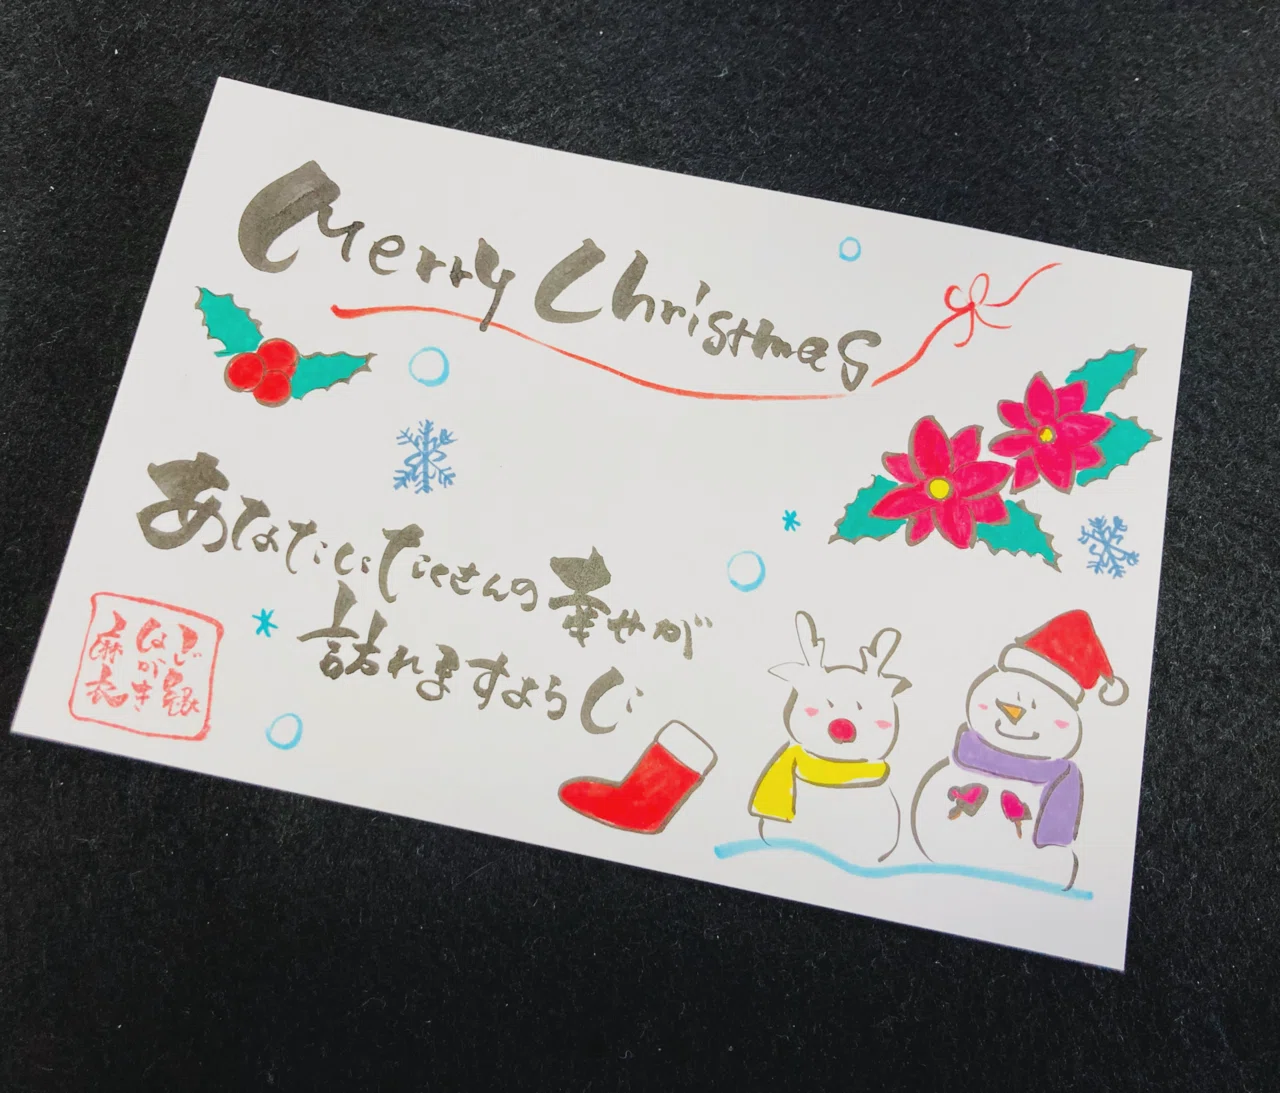 Merry Christmas
あなたにたくさんの幸せが
訪れますように
ご縁
はがき
麻衣